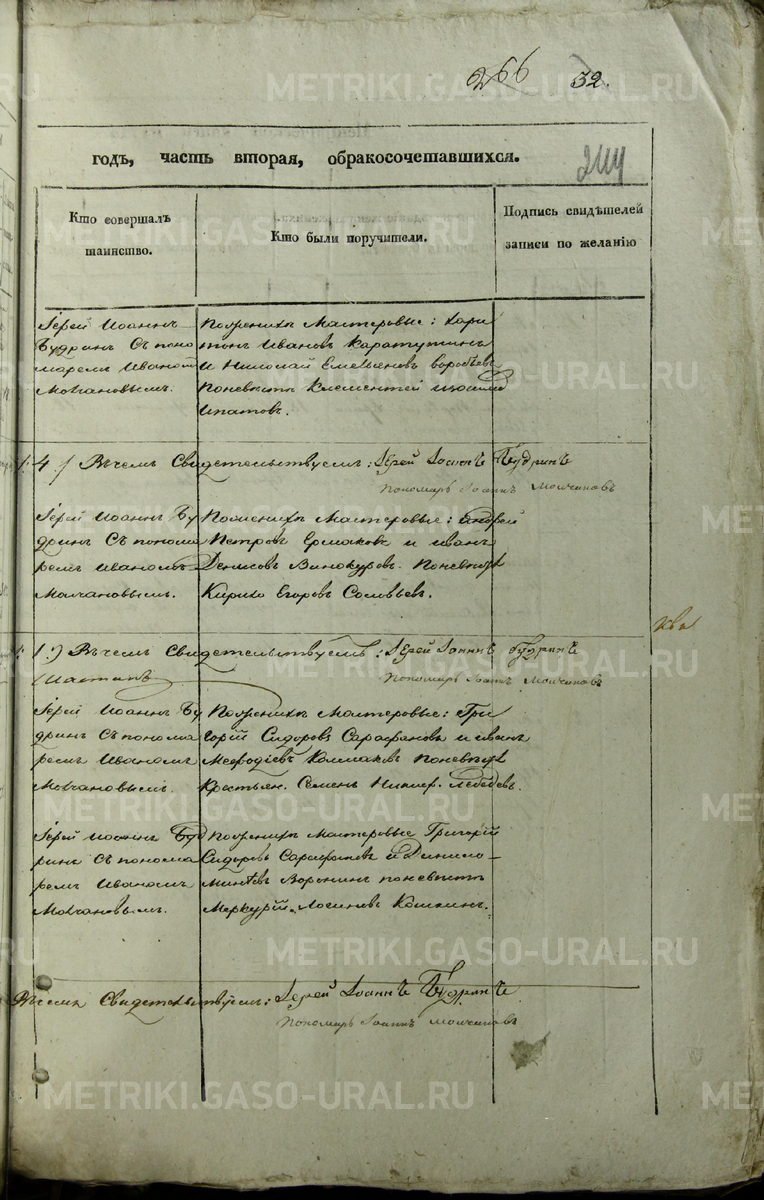 266 32.
годъ, часть вторая, обракосочетавшихся.
244
Кто совершалъ таинство.
Кто были поручители.
Подпись свидѣтелей записи по желанію
Іерей Иоаннъ
Будринъ Съ поно
маремъ Иваномъ
Молчановымъ.
По женихѣ Мастеровые: Хари
тонъ Ивановъ Каратугинъ
и Николай Емельяновъ Воробьевъ
По невѣстѣ Клементей
Ипатовъ.
4 / Въ чемъ Свидетельствуемъ: Іерей Іоаннъ Будринъ
Пономарь Іоаннъ Молчановъ
Іерей Иоаннъ Бу
дринъ Съ понома
ремъ Иваномъ
Молчановымъ.
По женихѣ Мастеровые: Андрей
Петровъ Ермаковъ и Иванъ
Денисовъ Винокуровъ. По невѣстѣ
Кирило Егоровъ Соловьевъ.
1:) Въ чемъ Свидетельствуемъ: Іерей Іоаннъ Будринъ
Пономарь Іоаннъ Молчановъ
Іерей Иоаннъ Бу
дринъ Съ понома
ремъ Иваномъ
Молчановымъ.
По женихѣ Мастеровые: Гри
горій Сидоровъ Сарафановъ и Иванъ
Мефодіевъ Колмаковъ По невѣстѣ
Крестьян. Семенъ Никиф. Лебедевъ.
Іерей Иоаннъ Буд
ринъ Съ понома
ремъ Иваномъ
Молчановымъ.
По женихѣ Мастеровые Григорій
Сидоровъ Сарафановъ и Данило
Минѣевъ Воронинъ по невѣстѣ
Меркурій Логиновъ Кошкинъ.
Въ чемъ Свидетельствуемъ: Іерей Іоаннъ Будринъ
Пономарь Іоаннъ Молчановъ
METRIKI.GASO-URAL.RU